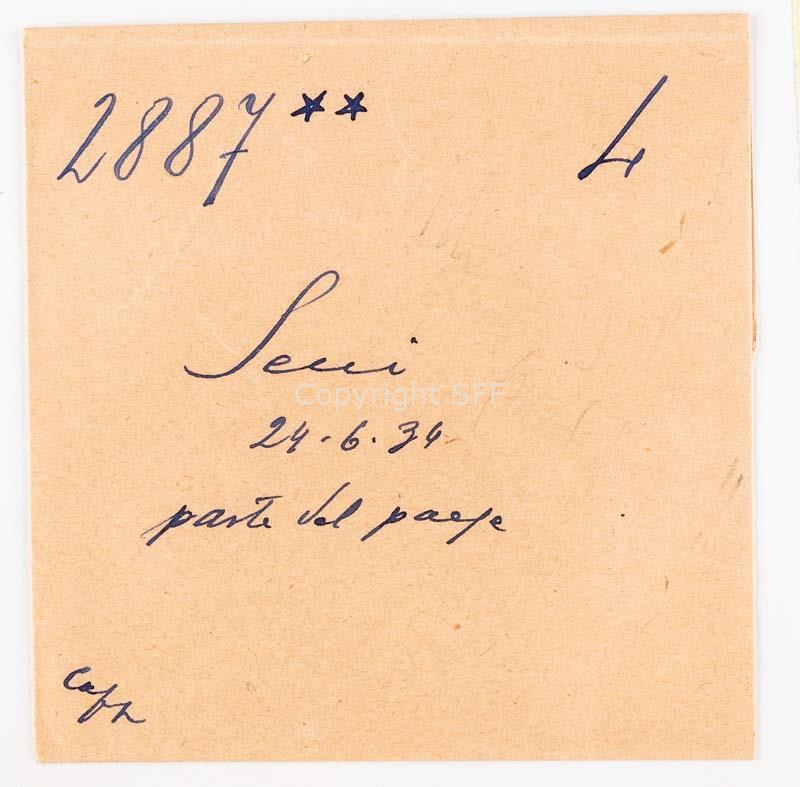 2887** L
Seui
Copyright SFF
24.6.34
parte del paese